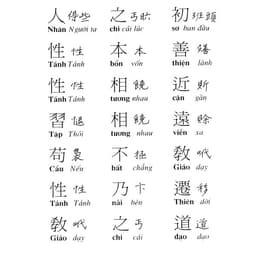 人 些 之 丐 初 班頭
Nhân Người ta chi cái lúc sơ ban đầu
性 性 本 本 善
Tánh Tánh bổn vốn thiện lành
性 性 相 饒 近
Tánh Tánh tương nhau cận gần
習 相 饒 遠 賒
Tập Thói tương nhau viễn xa
苟 裊 不 極 教 𠰺
Cẩu Nếu bất chẳng Giáo dạy
性 性 乃 卞 遷 移
Tánh Tánh nãi bèn Thiên dời
教 𠰺 之 丐 道 道
Giáo dạy chi cái đạo đạo